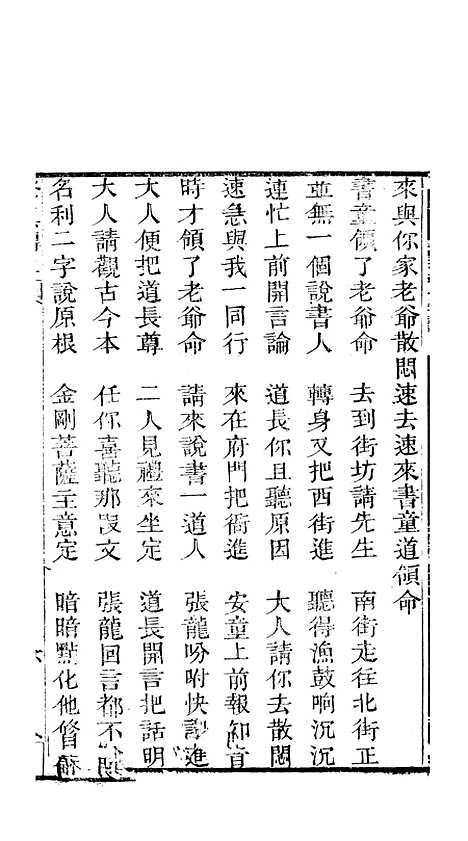 來與你家老爺散悶速去速來書童道領命
書童領了老爺命　去到街坊請先生　南街走往北街正
並無一個說書人　轉身又把西街進　聽得漁鼓响沉沉
連忙上前開言論　道長你且聽原因　大人請你去散悶
速急與我一同行　來在府門把衙進　安童上前報知音
時才領了老爺命　請來說書一道人　張龍吩咐快請進
大人便把道長尊　二人見禮來坐定　道長開言把話明
大人請觀古今本　任你喜聽那段文　張龍回言都不
名利二字說原根　金剛菩薩主意定　暗暗點化他脩